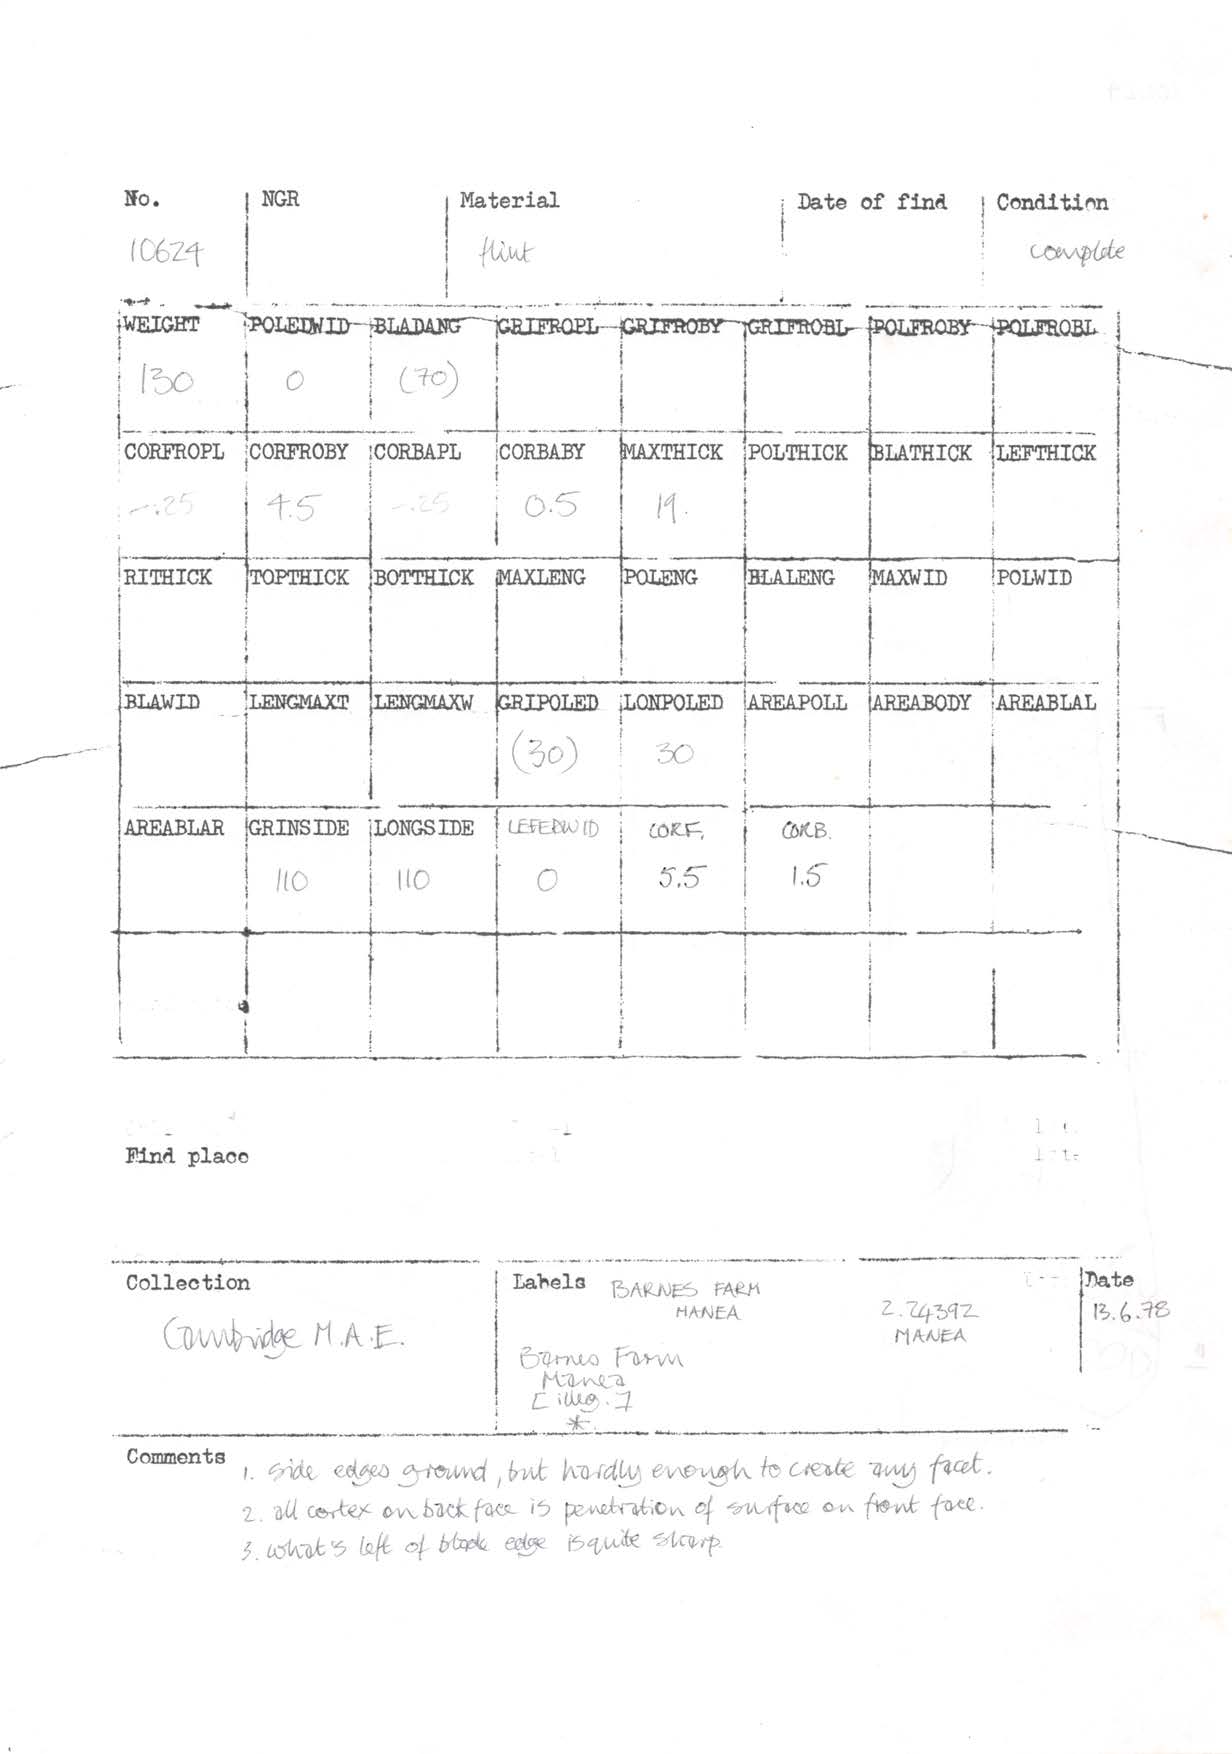 No. NGR Material Date of find Condition
10624 flint complete
WEIGHT POLEDWID BLADANG GRIFROPL GRIFROBY GRIFROBL POLFROBY POLFROBL
130 0 (70)
CORFROPL CORFROBY CORBAPL CORBABY MAXTHICK POLTHICK BLATHICK LEFTHICK
-.25 4.5 -.25 0.5 19.
RITHICK TOPTHICK BOTTHICK MAXLENG POLENG BLALENG MAXWID POLWID
BLAWID LENGMAXT LENGMAXW GRIPOLED LONPOLED AREAPOLL AREABODY AREABLAL
(30) 30
AREABLAR GRINSIDE LONGSIDE LEFEDWID CORF. CORB.
110 110 0 5.5 1.5
Find place
Collection Labels BARNES FARM Date
MANEA 2.24392 13.6.78
Cambridge M.A.E. MANEA
Barnes Farm
Manea
[illeg.]
*
Comments 1. side edges ground, but hardly enough to create any facet.
2. all cortex on back face is penetration of surface on front face.
3. what's left of blade edge is quite sharp.